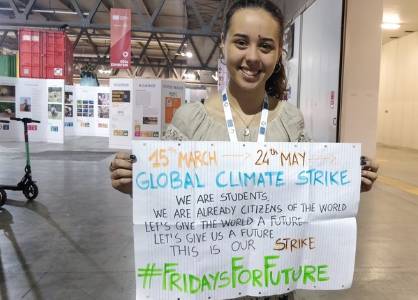 15th MARCH → 24th MAY →
GLOBAL CLIMATE STRIKE
WE ARE STUDENTS,
WE ARE ALREADY CITIZENS OF THE WORLD
LET'S GIVE THE WORLD A FUTURE
LET'S GIVE US A FUTURE
THIS IS OUR STRIKE
#FRIDAYSFORFUTURE